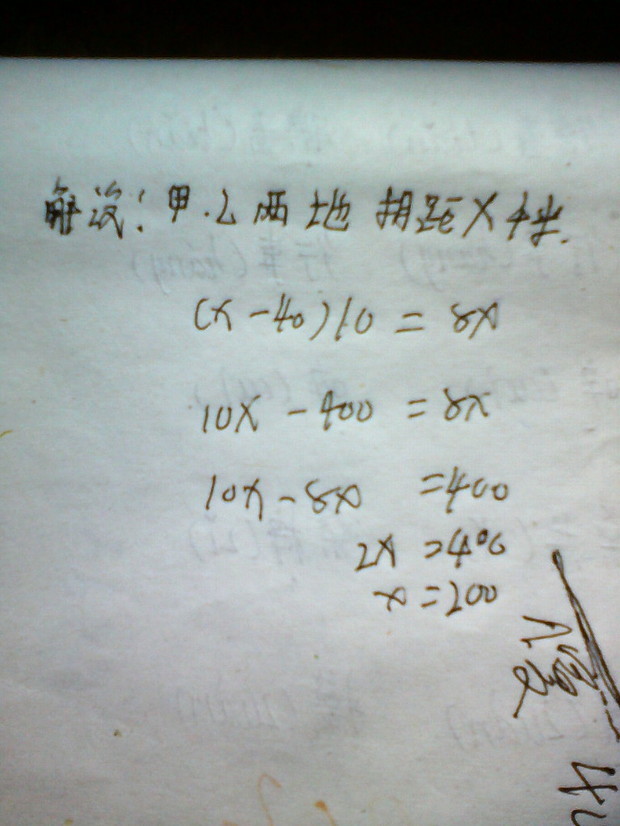 解设:甲.乙两地相距X千米.
(x-40)10=8x
10x-400=8x
10x-8x=400
2x=400
x=200